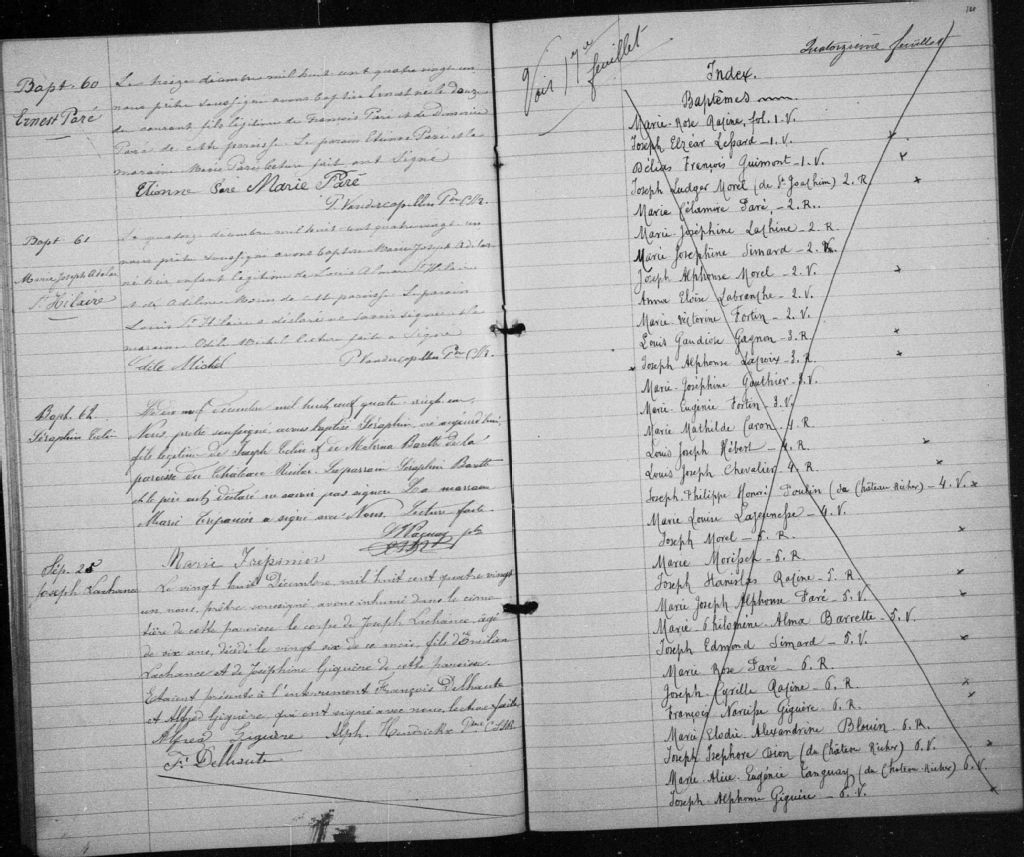 Bapt. 60
Ernest Paré
Le treize décembre mil huit cent quatre vingt un
nous prêtre soussigné avons baptisé Ernest né le douze
du courant fils légitime de François Paré et de
Paré de cette paroisse. Le parrain Etienne Paré et la
marraine Marie Paré lecture fait ont signé
Etienne Paré Marie Paré
P. Vandercapellen Ptre CSSR.
Bapt 61
Marie Joseph
St Hilaire
Le quatorze décembre mil huit cent quatrevingt un
nous prêtre soussigné avons baptisé Marie Joseph
né hier enfant légitime de Louis St Hilaire
et de Adeline de cette paroisse Le parrain
Louis St Hilaire a déclaré ne savoir signer et la
marraine Odele Michel lecture faite a signé
Odele Michel P. Vandercapellen Ptre CSSR.
Bapt. 62
Séraphin
Le dix neuf Décembre mil huit cent quatre-vingt un,
Nous prêtre soussigné, avons baptisé Séraphin, né aujourd'hui,
fils légitime de Joseph et de Barette de la
paroisse du Château Richer. Le parrain Séraphin Barette
et le père ont déclaré ne savoir pas signer. La marraine
Marie Trépanier a signé avec Nous. Lecture faite.
ptre
Marie Trépanier
Sép. 25
Joseph Lachance
Le vingt huit Décembre, mil huit cent quatre vingt
un, nous, prêtre soussigné, avons inhumé dans le cime-
tière de cette paroisse le corps de Joseph Lachance, âgé
de six ans, décédé le vingt six de ce mois, fils d'Emilien
Lachance et de Joséphine Giguère de cette paroisse.
Etaient présents à l'enterrement François Delhaute
et Alfred Giguère, qui ont signé avec nous, lecture faite.
Alfred Giguère Alph. Hendrickx Ptre CSSR.
Fs Delhaute
Voir 17e feuillet
Quatorzième feuillet
Index.
Baptêmes
Marie-Rose Racine, fol. 1. V.
Joseph Elzéar Lessard - 1. V.
Délias François Guimont - 1. V.
Joseph Ludger Morel (de St Joachim) 2. R.
Marie Célamire Paré, - 2. R.
Marie-Joséphine Lachine - 2. R
Marie Joséphine Simard - 2.
Joseph Alphonse Morel - 2. V.
Anna Eloïse Labranche - 2. V.
Marie-Victorine Fortin - 2. V.
Louis Gaudiose Gagnon - 3. R.
Joseph Alphonse Lacroix - 3. R.
Marie-Joséphine Gauthier - 3. V.
Marie-Eugénie Fortin - 3. V.
Marie Mathilde Caron - 4. R
Louis Joseph Hébert - 4. R.
Louis Joseph Chevalier - 4. R.
Joseph-Philippe Honoré Poulin (du Château Richer) - 4. V.
Marie Louise Lajeunesse - 4. V.
Joseph Morel - 5. R.
Marie Morissett - 5. R
Joseph Stanislas Racine - 5. R.
Marie Joseph Alphonse Paré - 5. V.
Marie-Philomène-Alma Barrette - 5. V.
Joseph Edmond Simard - 5. V.
Marie Rose Paré - 6. R.
Joseph Cyrille Racine - 6. R
François Narcisse Giguère - 6. R.
Marie Elodie Alexandrine Blouin 6. R.
Joseph Isephore Dion (du Château Richer) 6. V.
Marie-Alice-Eugénie Tanguay (du Château-Richer) 6. V.
Joseph Alphonse Giguère - 6. V.